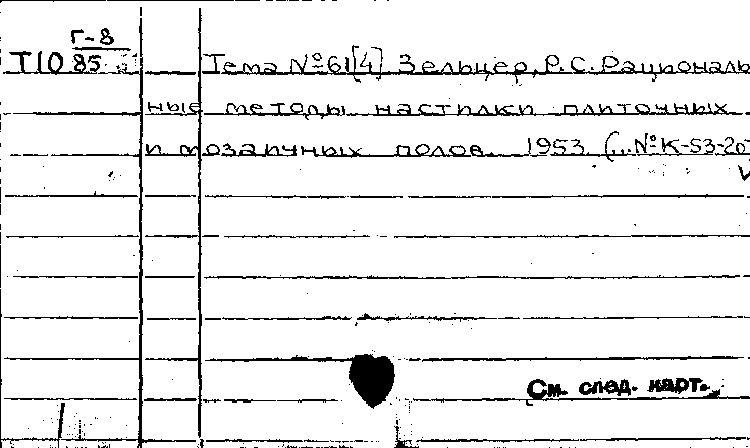 Г-8
Т10 85 Тема №61[4] Зельцер, Р.С. Рациональ
ные методы настилки плиточных
и мозаичных полов. 1953 (...№К-53-20
См. след. карт.